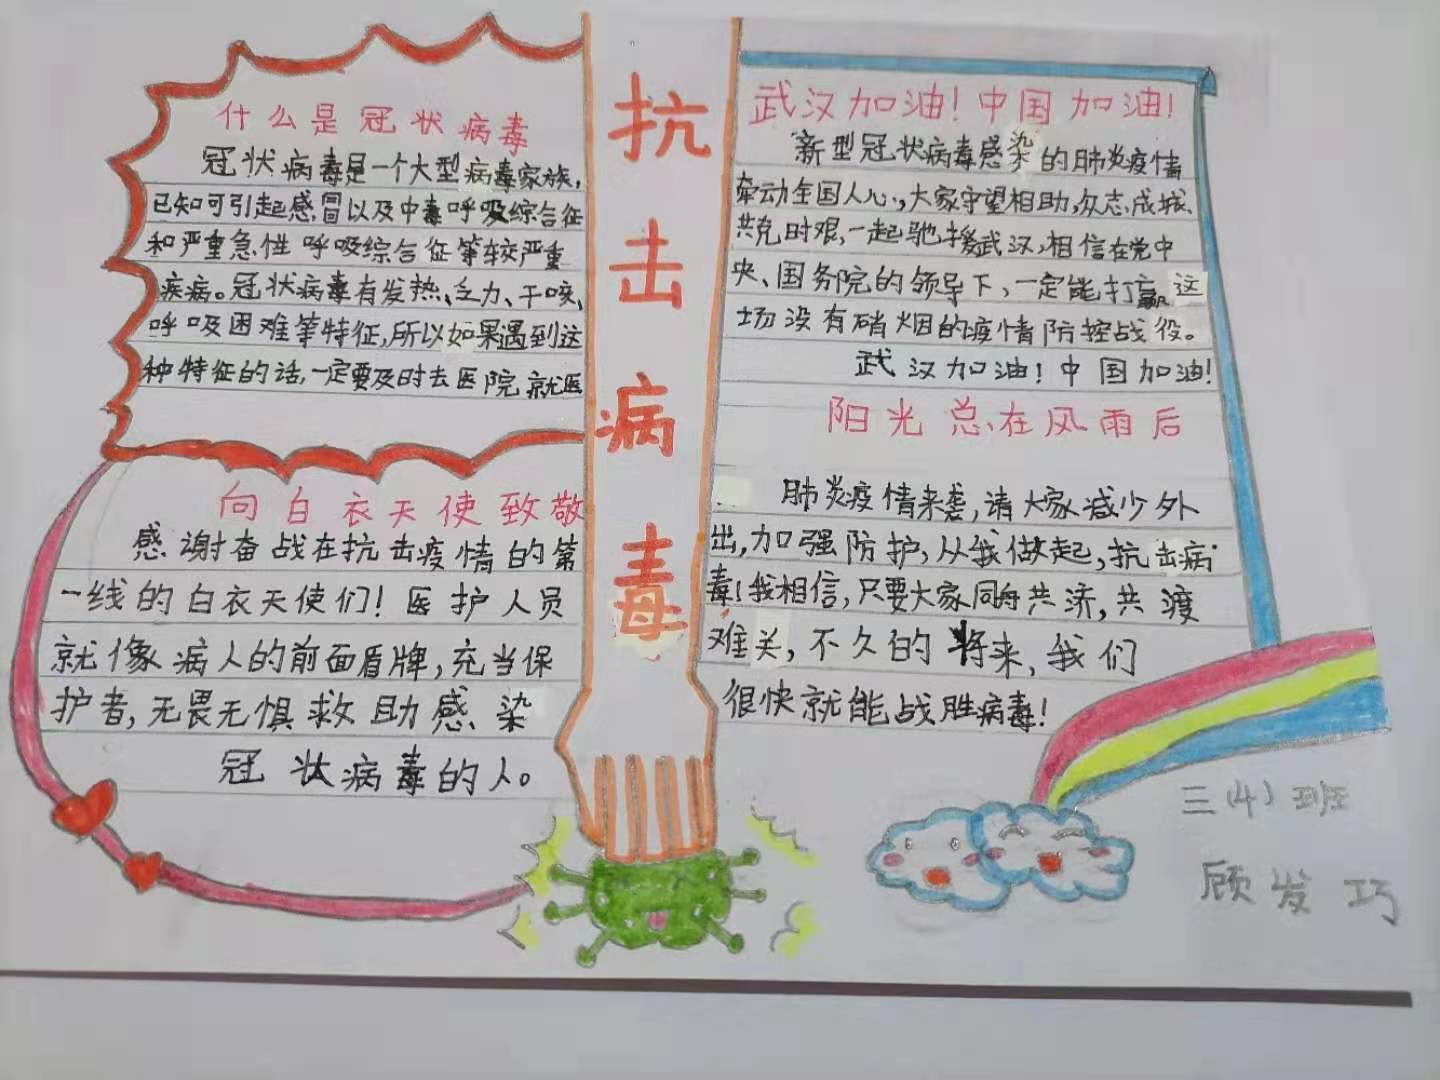 抗击病毒
什么是冠状病毒
冠状病毒是一个大型病毒家族,
已知可引起感冒以及中毒呼吸综合征
和严重急性呼吸综合征等较严重
疾病。冠状病毒有发热、乏力、干咳、
呼吸困难等特征,所以如果遇到这
种特征的话,一定要及时去医院就医
向白衣天使致敬
感谢奋战在抗击疫情的第
一线的白衣天使们!医护人员
就像病人的前面盾牌,充当保
护者,无畏无惧救助感染
冠状病毒的人。
武汉加油!中国加油!
新型冠状病毒感染的肺炎疫情
牵动全国人心,大家守望相助,众志成城、
共克时艰,一起驰援武汉,相信在党中
央、国务院的领导下,一定能打赢这
场没有硝烟的疫情防控战役。
武汉加油!中国加油!
阳光总在风雨后
肺炎疫情来袭,请大家减少外
出,加强防护,从我做起,抗击病
毒!我相信,只要大家同舟共济,共渡
难关,不久的将来,我们
很快就能战胜病毒!
三(4)班
顾发巧